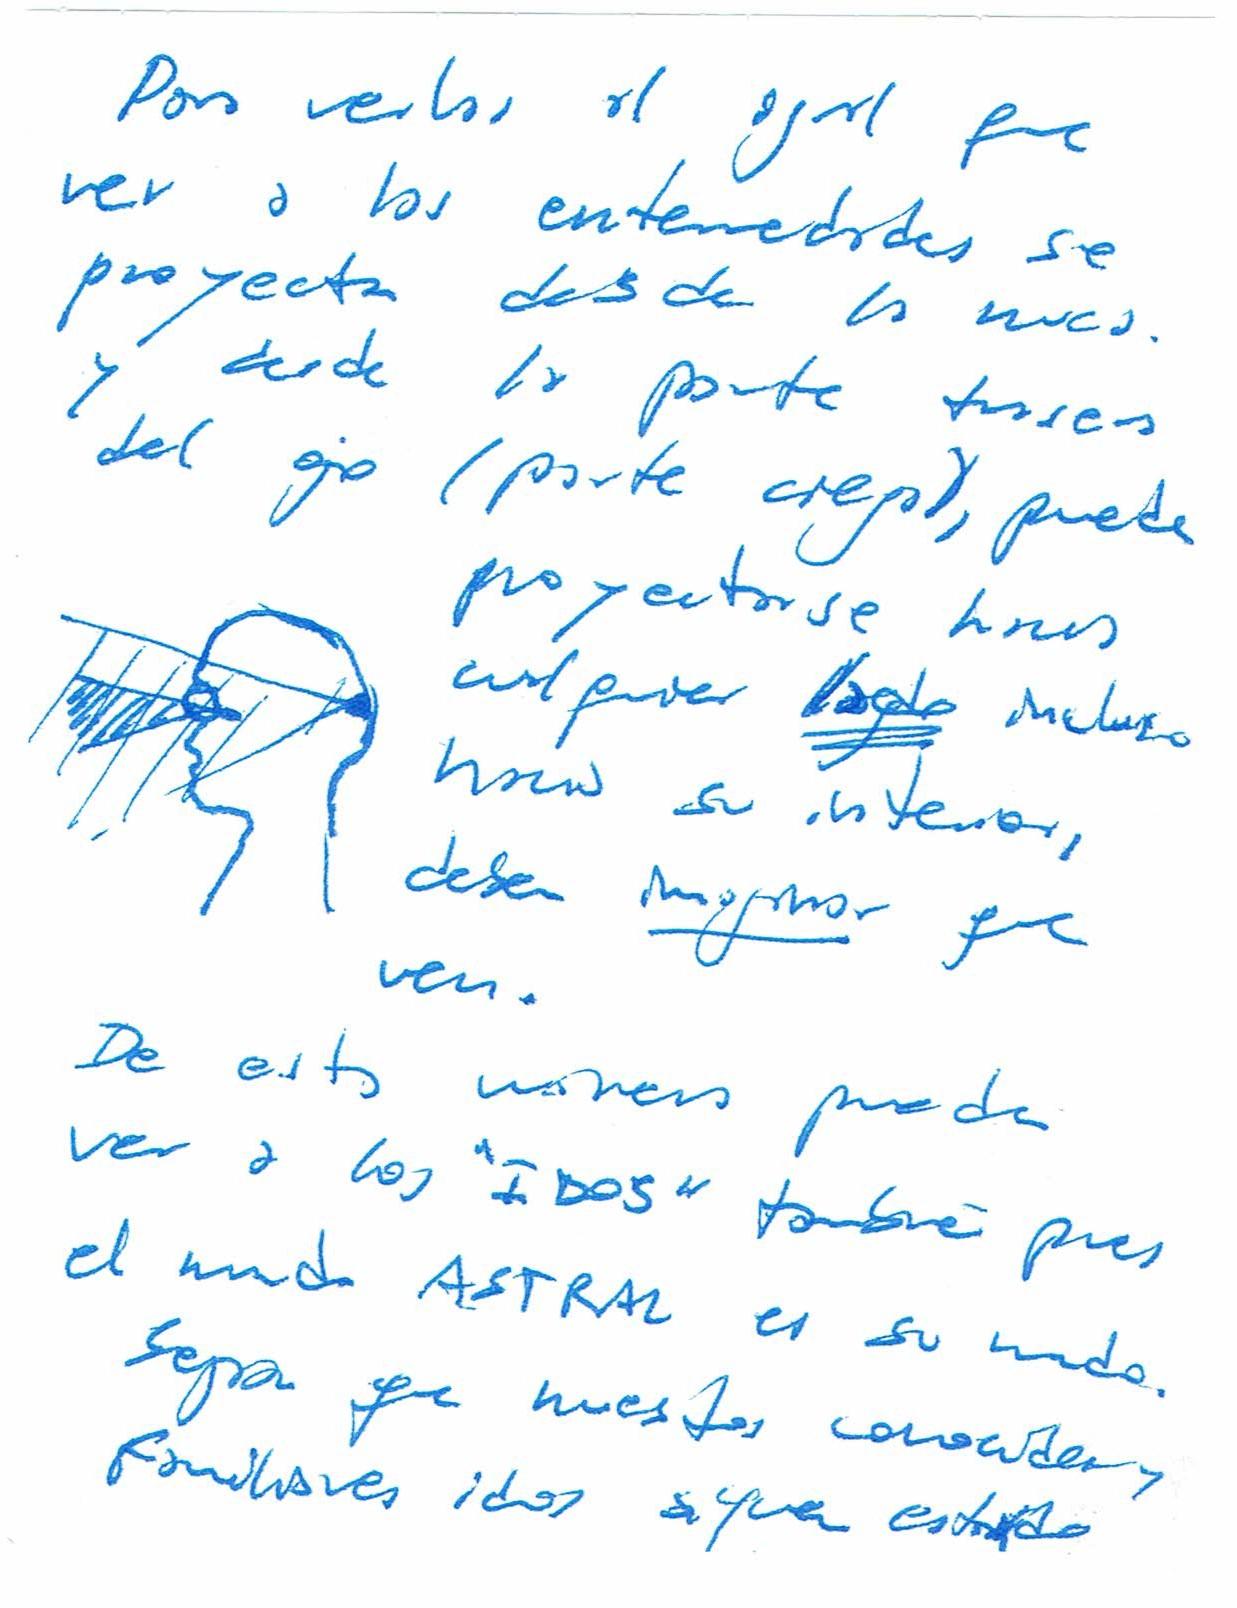 Para verlas al igual que
ver a las enfermedades se
proyectan desde la nuca.
y desde la parte trasera
del ojo (parte ciega), puede
proyectarse hacia
cualquier lado incluso
hacia su interior,
deben imaginar que
ven.
De esta manera pueden
ver a los "IDOS" también pues
el mundo ASTRAL es su mundo.
Sepan que nuestros conocidos y
Familiares idos siguen estando